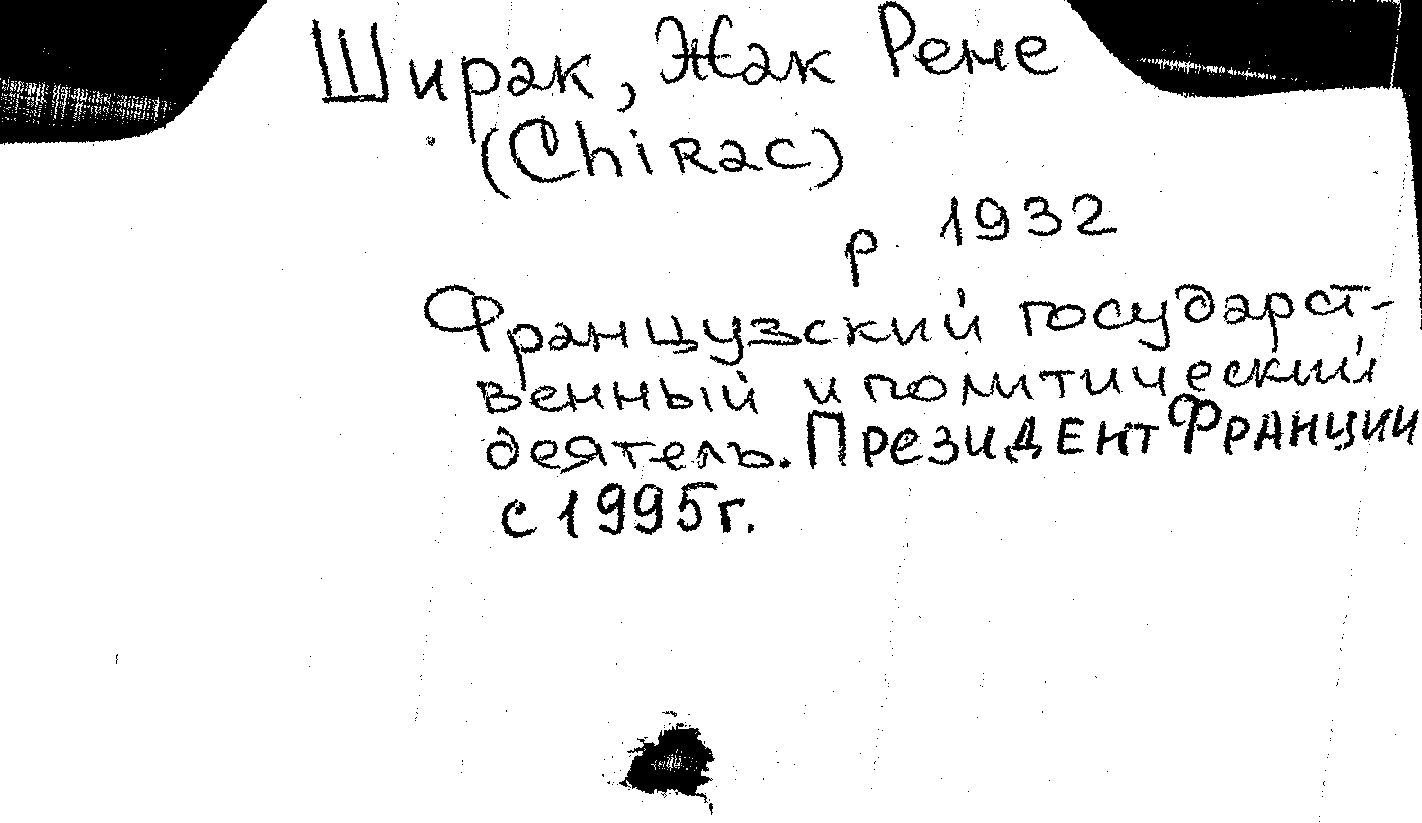 Ширак, Жак Рене
(Chirac)
р. 1932
Французский государст-
венный и политический
деятель. Президент Франции
с 1995г.